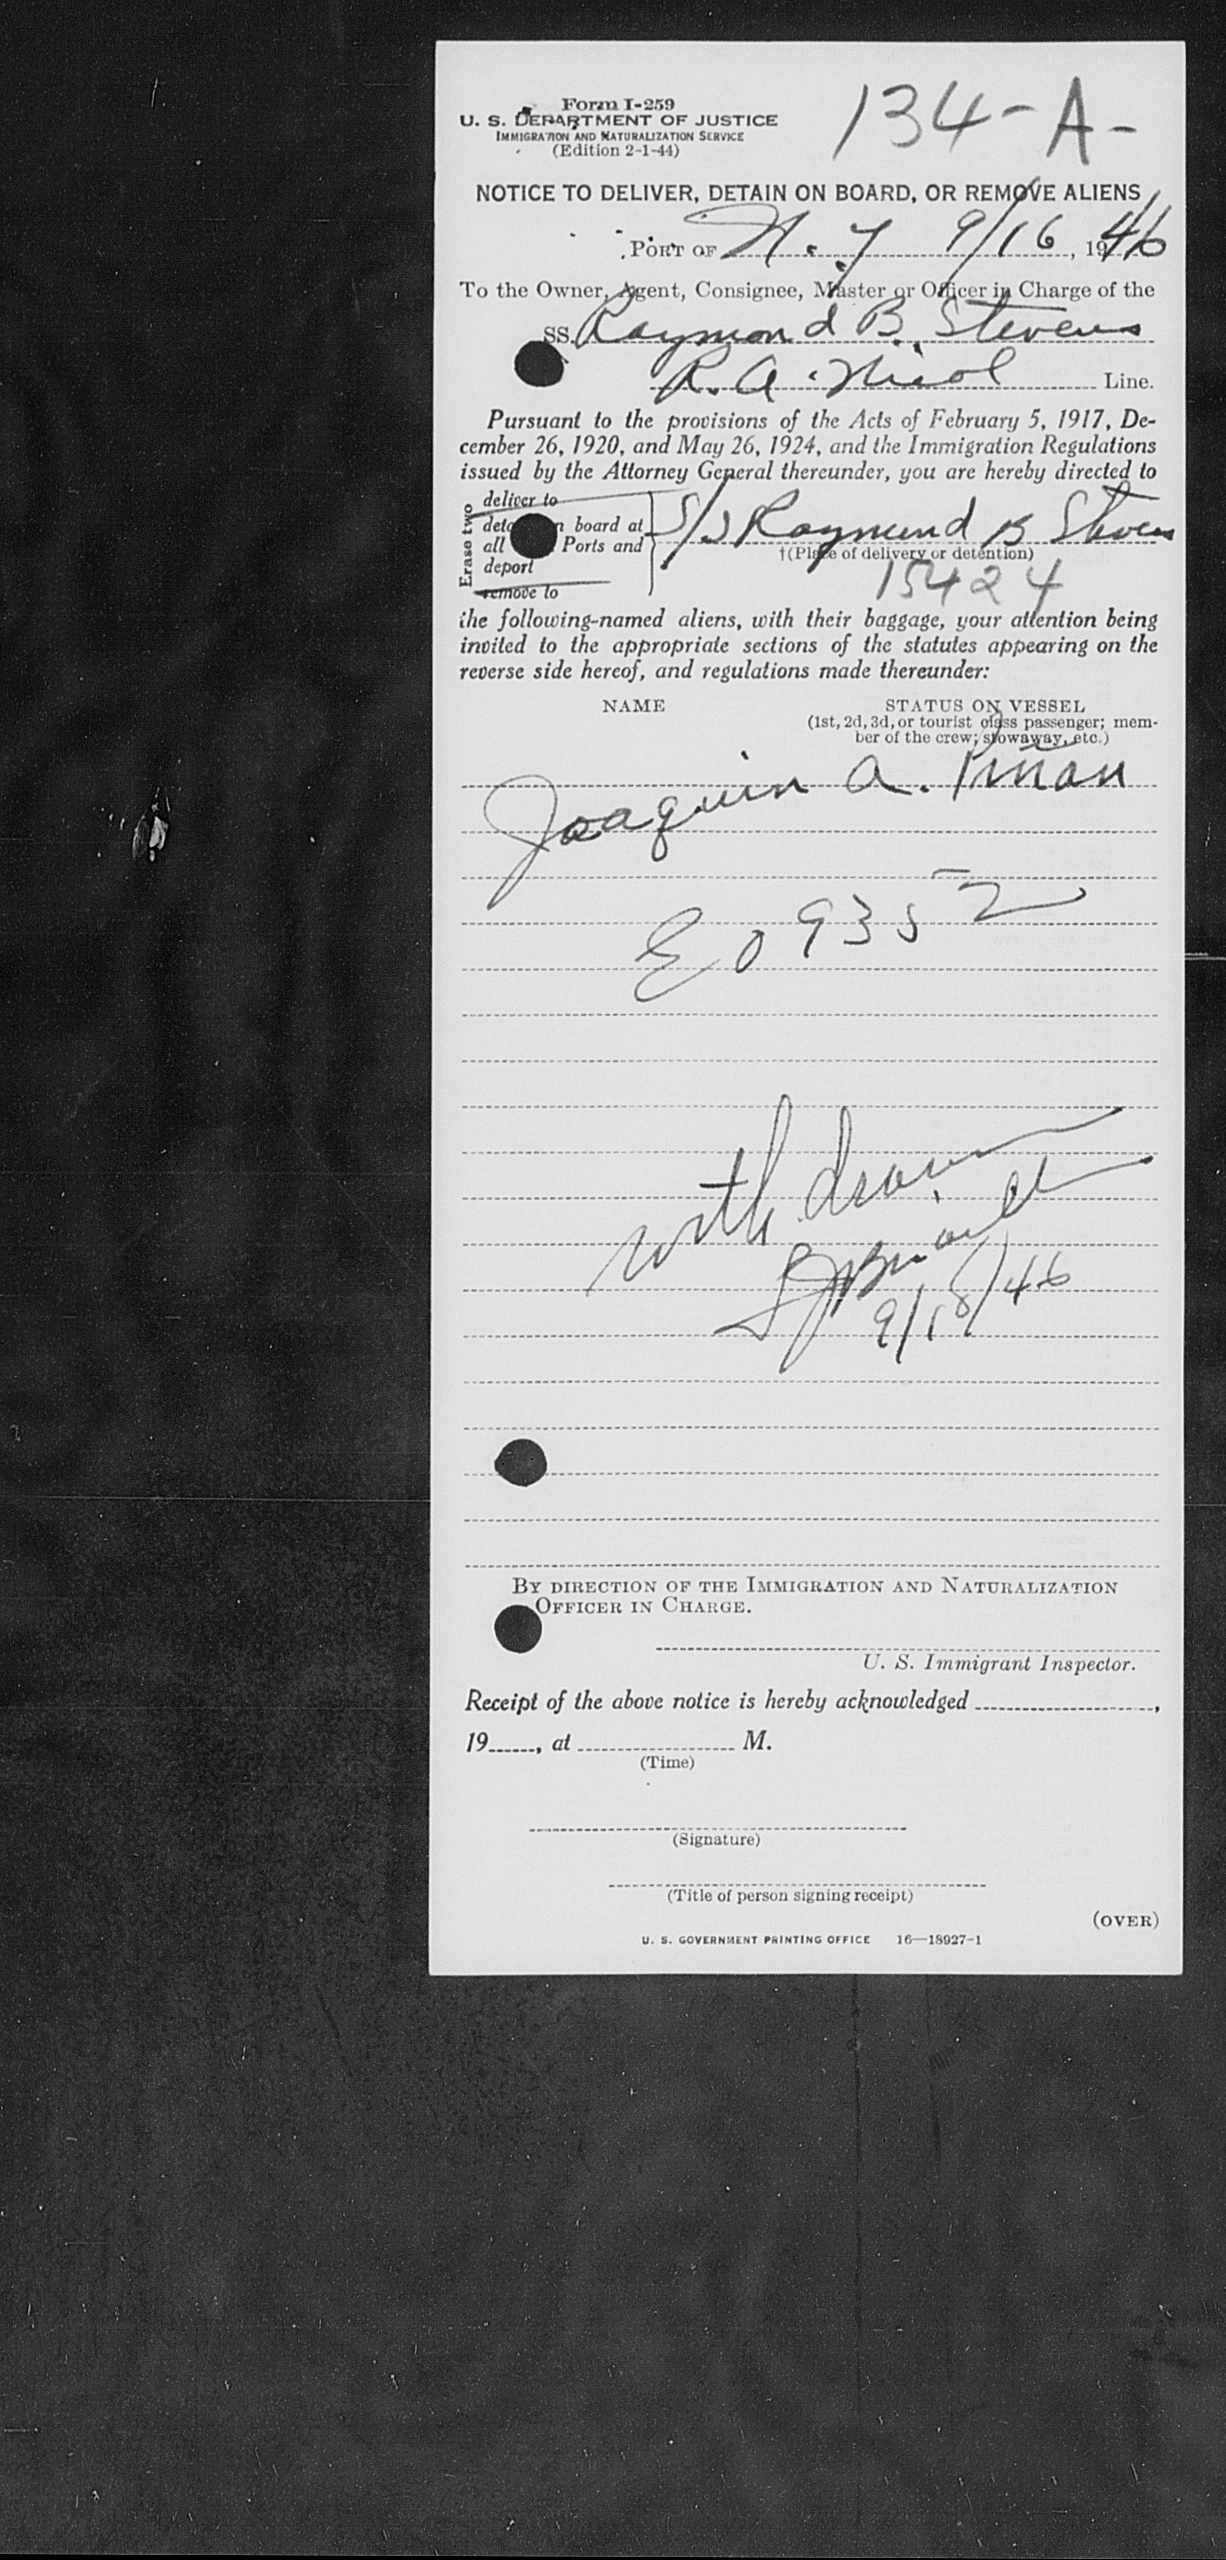 134-A-
Form I-259
U. S. DEPARTMENT OF JUSTICE
IMMIGRATION AND NATURALIZATION SERVICE
(Edition 2-1-44)
NOTICE TO DELIVER, DETAIN ON BOARD, OR REMOVE ALIENS
PORT OF N.Y 9/16, 1946
To the Owner, Agent, Consignee, Master or Officer in Charge of the
SS. Raymond B. Stevens
R. A. Nicol Line.
Pursuant to the provisions of the Acts of February 5, 1917, De-
cember 26, 1920, and May 26, 1924, and the Immigration Regulations
issued by the Attorney General thereunder, you are hereby directed to
Erase two
deliver to
board at
all Ports and
deport
remove to
S/S Raymond B Stevens
†(Place of delivery or detention)
15424
the following-named aliens, with their baggage, your attention being
invited to the appropriate sections of the statutes appearing on the
reverse side hereof, and regulations made thereunder:
NAME STATUS ON VESSEL
(1st, 2d, 3d, or tourist class passenger; mem-
ber of the crew; stowaway, etc.)
Joaquin A. Piñon
E09352
withdrawn
9/18/46
BY DIRECTION OF THE IMMIGRATION AND NATURALIZATION
OFFICER IN CHARGE.
U. S. Immigrant Inspector.
Receipt of the above notice is hereby acknowledged ,
19 , at M.
(Time)
(Signature)
(Title of person signing receipt)
(OVER)
U. S. GOVERNMENT PRINTING OFFICE 16—18927-1